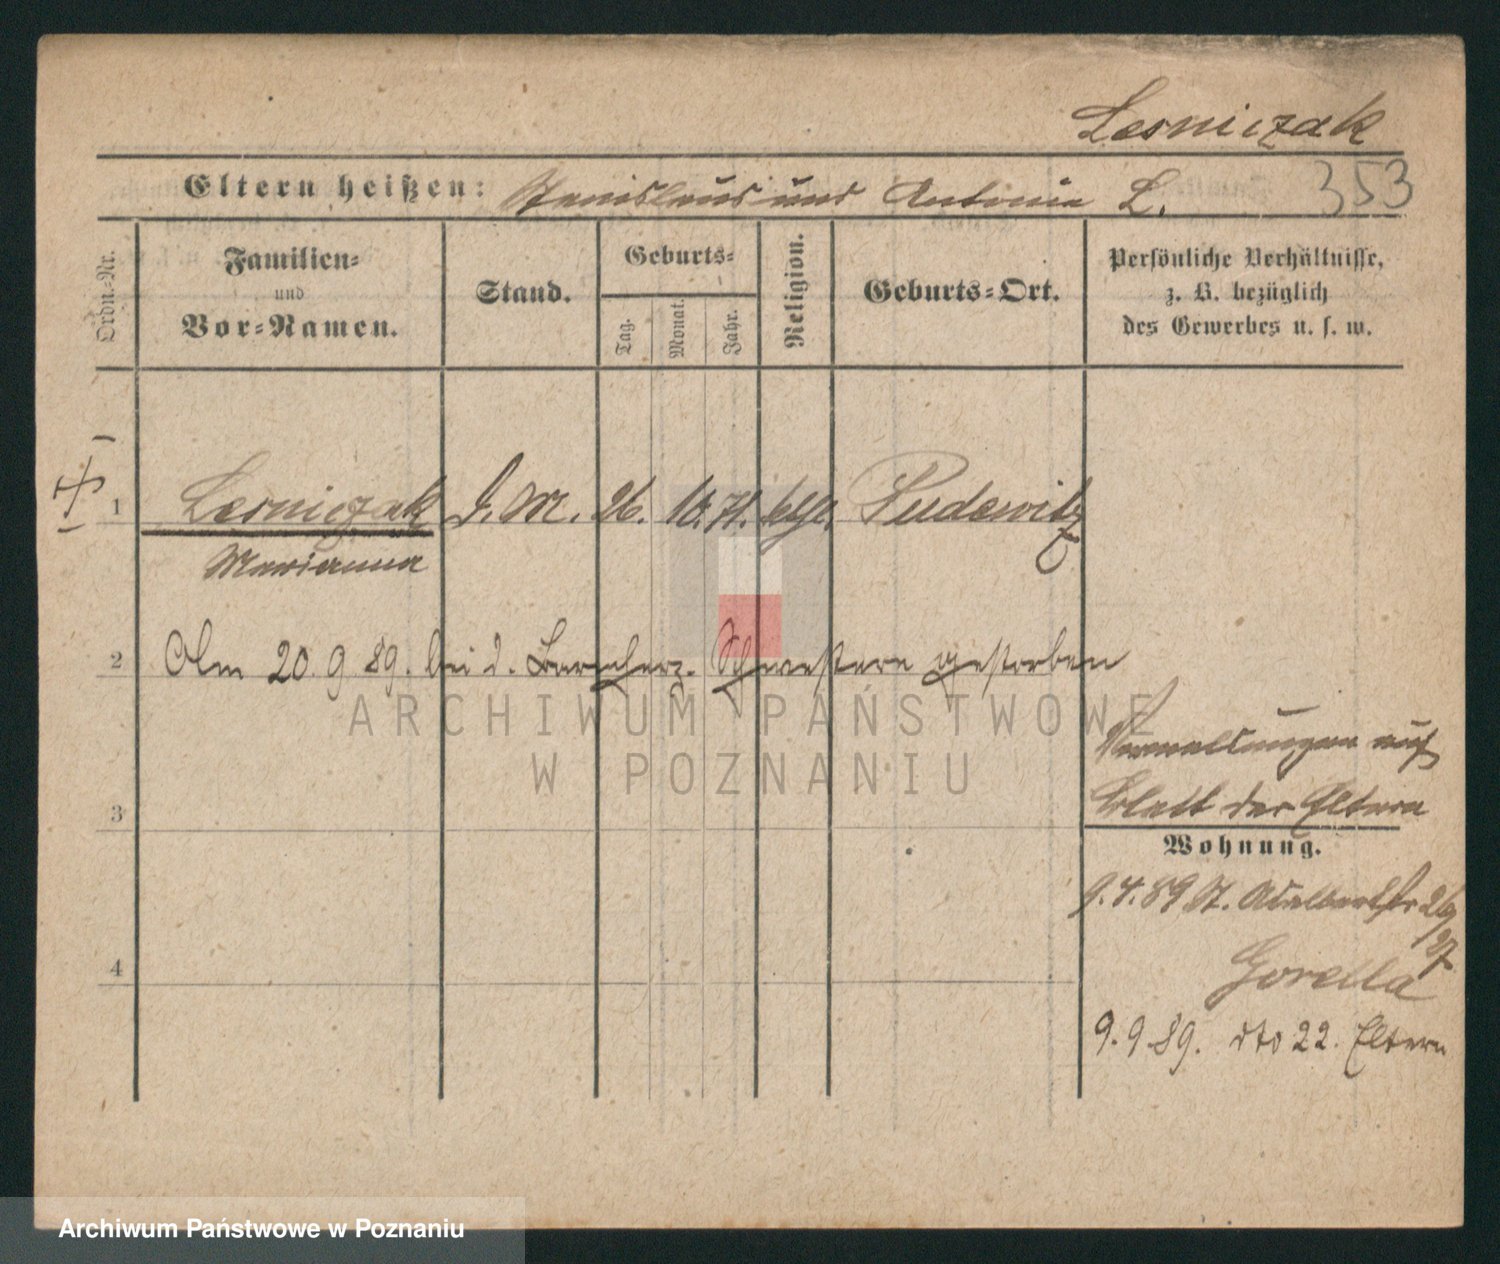 Lesniczak
Eltern heißen: Stanislaus und Antonie L. 353
Ordn.-Nr.
Familien-
und
Vor-Namen.
Stand.
Geburts-
Tag.
Monat.
Jahr.
Religion.
Geburts-Ort.
Persönliche Verhältnisse,
z. B. bezüglich
des Gewerbes u. s. w.
1 Lesniczak D. M. 26. 10. 71. Pudewitz
Marianna
2 Am 20. 9 89. bei d. Barmherz. Schwestern gestorben
ARCHIWUM PAŃSTWOWE
W POZNANIU
auf
Blatt der Eltern
3
Wohnung.
9.4.89 St. Adalbertstr 26/
27
Gorella
4
9.9.89. dto 22. Eltern
Archiwum Państwowe w Poznaniu